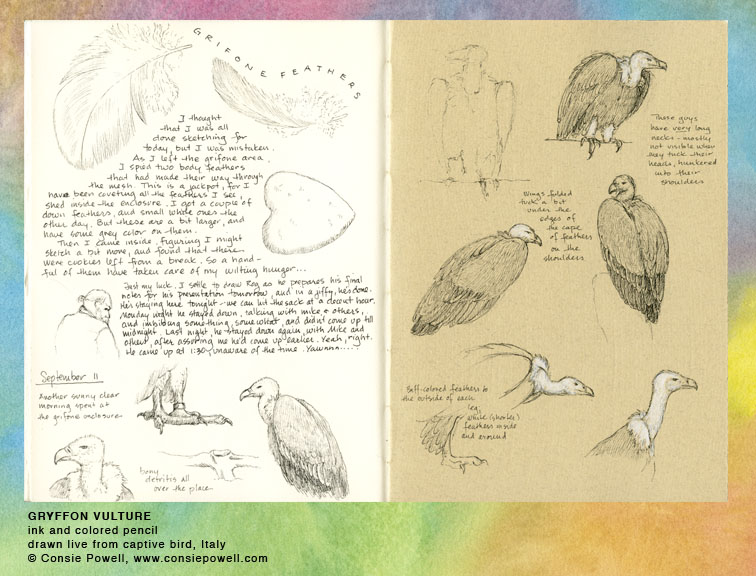 GRIFONE FEATHERS
I thought
that I was all
done sketching for
today, but I was mistaken.
As I left the grifone area,
I spied two body feathers
that had made their way through
the mesh. This is a jackpot, for I
have been coveting all the feathers I see,
shed inside the enclosure. I got a couple of
down feathers, and small white ones the
other day. But these are a bit larger, and
have some grey color on them.
Then I came inside, figuring I might
sketch a bit more, and found that there
were cookies left from a break. So a hand-
ful of them have taken care of my wilting hunger...
Just my luck. I settle to draw Rog as he prepares his final
notes for his presentation tomorrow, and in a jiffy, he's done.
He's staying here tonight - we can hit the sack at a decent hour.
Monday night he stayed down, talking with Mike & others,
and imbibing something, somewhat, and didn't come up till
midnight. Last night, he stayed down again, with Mike and
others, after assuring me he'd come up earlier. Yeah, right.
He came up at 1:30, unaware of the time. Yawnnn.....
September 11
Another sunny clear
morning spent at
the grifone enclosure
bony
detritis all
over the place
These guys
have very long
necks - mostly
not visible when
they tuck their
heads, hunkered
into their
shoulders
Wings folded
tuck a bit
under the
edges of
the cape
of feathers
on the
shoulders
Buff-colored feathers to
the outside of each
leg;
white (shorter)
feathers inside
and around
GRYFFON VULTURE
ink and colored pencil
drawn live from captive bird, Italy
© Consie Powell, www.consiepowell.com